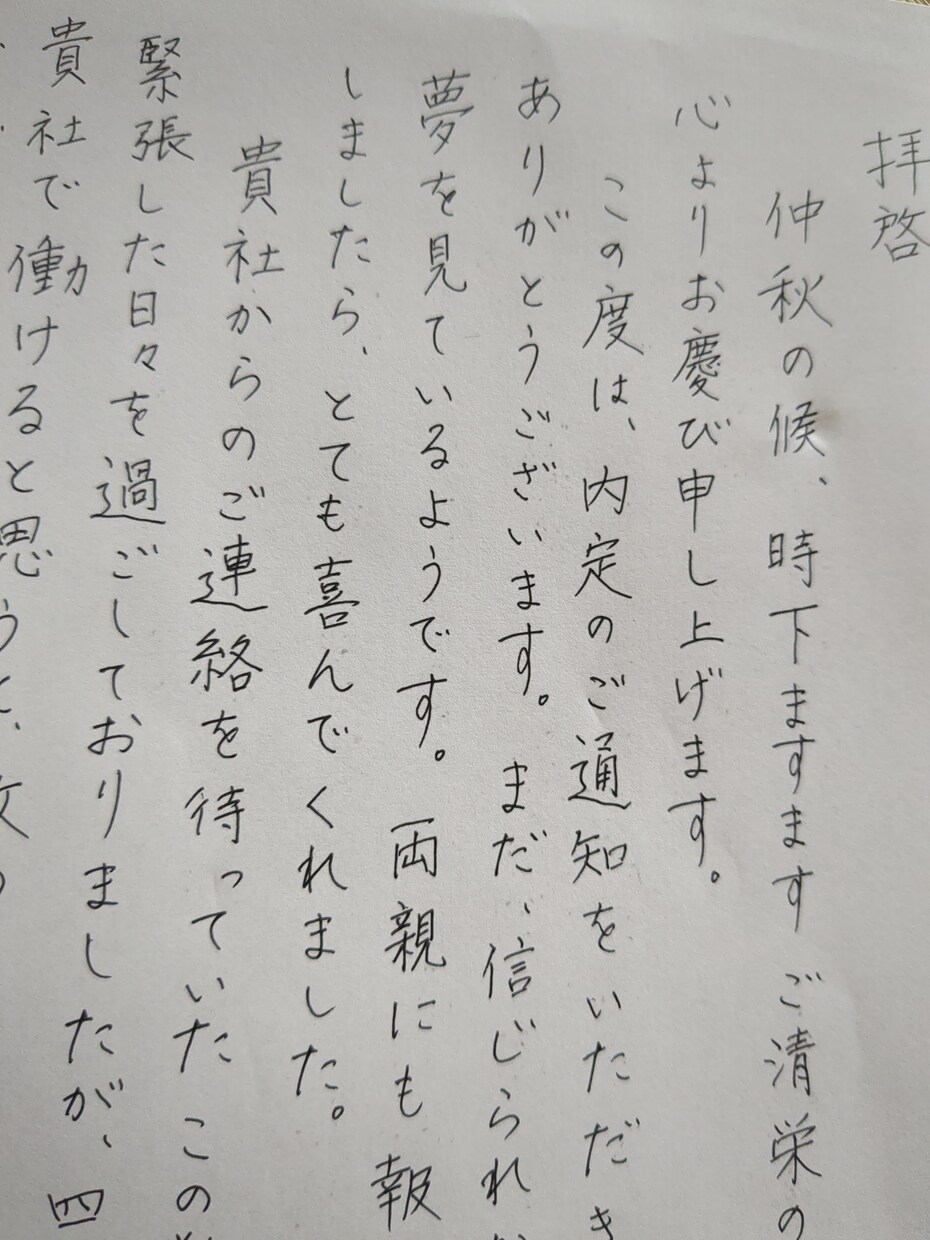 拝啓
仲秋の候、時下ますますご清栄の
心よりお慶び申し上げます。
この度は、内定のご通知をいただき
ありがとうございます。まだ、信じられ
夢を見ているようです。両親にも報
しましたら、とても喜んでくれました。
貴社からのご連絡を待っていた この
緊張した日々を過ごしておりましたが、四
貴社で働けると思うと、